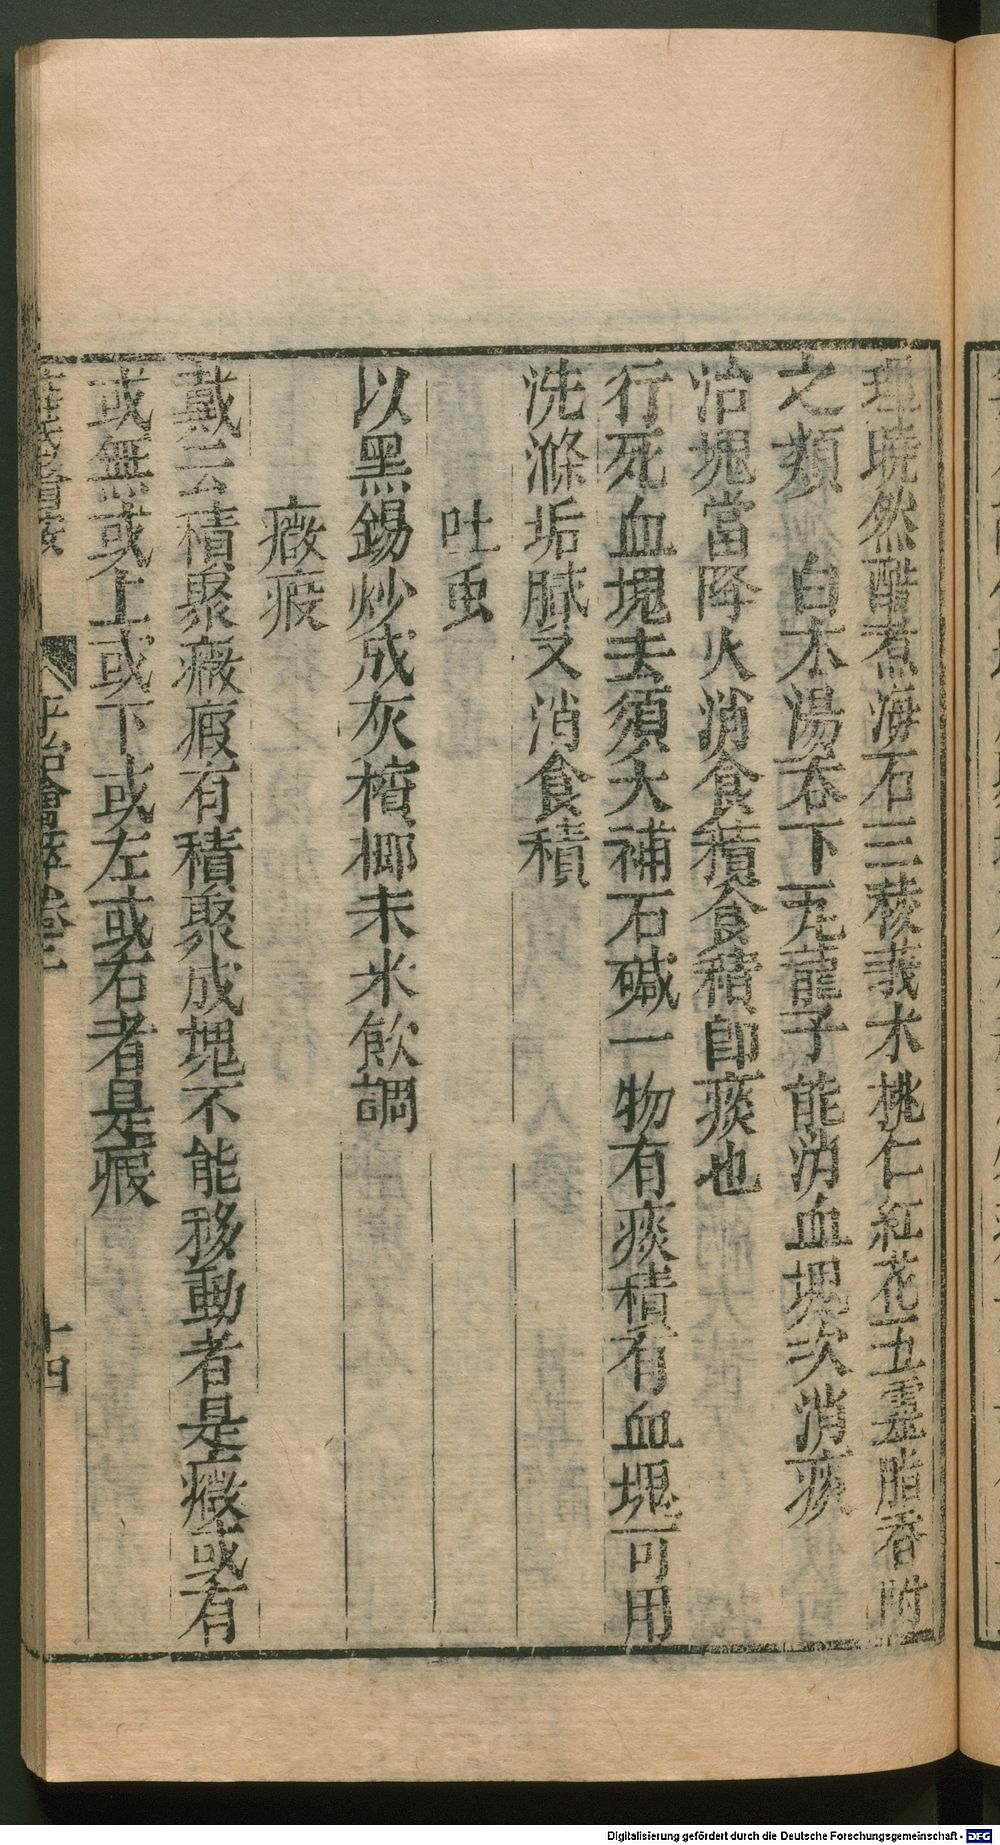 理曉然醋煮海石三稜莪朮桃仁紅花五靈脂香附
之類　白朮湯吞下瓦龍子能消血塊次消痰
治塊當降火消食積食積即痰也
行死血塊去須大補石碱一物有痰積有血塊可用
洗滌垢膩又消食積
吐虫
以黑錫炒成灰檳榔末米飲調
癥瘕
戴云積聚癥瘕有積聚成塊不能移動者是癥或有
或無或上或下或左或右者是瘕
平治會萃卷三
十四
Digitalisierung gefördert durch die Deutsche Forschungsgemeinschaft - DFG